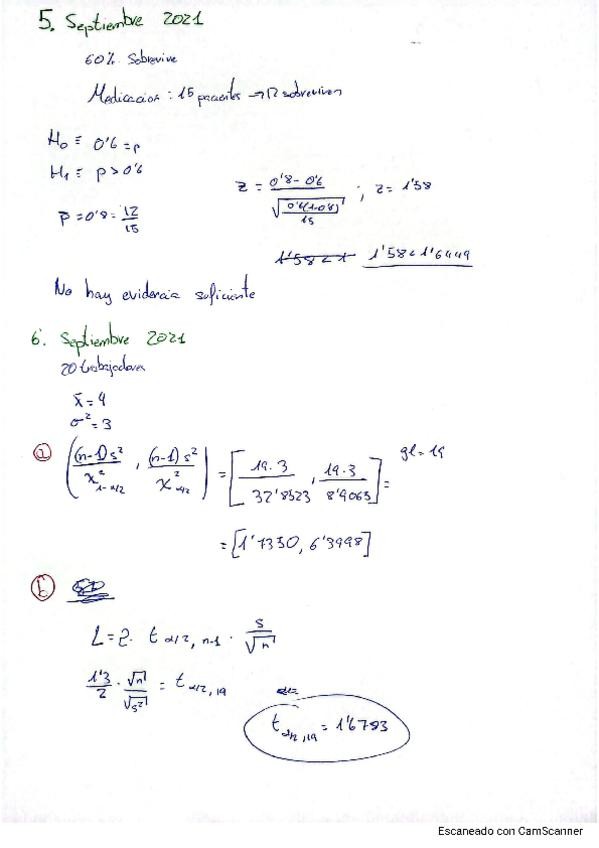 5. Septiembre 2021
60% Sobrevive
Medicacion: 15 pacientes → 12 sobreviven
H₀ ≡ 0'6 = p
H₁ ≡ p > 0'6
p̄ = 0'8 = 12/15
z = (0'8 - 0'6) / √(0'6(1-0'6)/15) ; z = 1'58
1'58 < 1'6449
No hay evidencia suficiente
6. Septiembre 2021
20 trabajadores
x̄ = 4
σ² = 3
a) ((n-1)s² / χ²₁₋α/₂ , (n-1)s² / χ²α/₂) = [19·3 / 32'8523 , 19·3 / 8'9065] = gl = 19
= [1'7350, 6'3998]
b)
L = 2· t α/2, n-1 · s/√n
1'3/2 · √n/√s² = t α/2, 19
t α/2, 19 = 1'6783
Escaneado con CamScanner